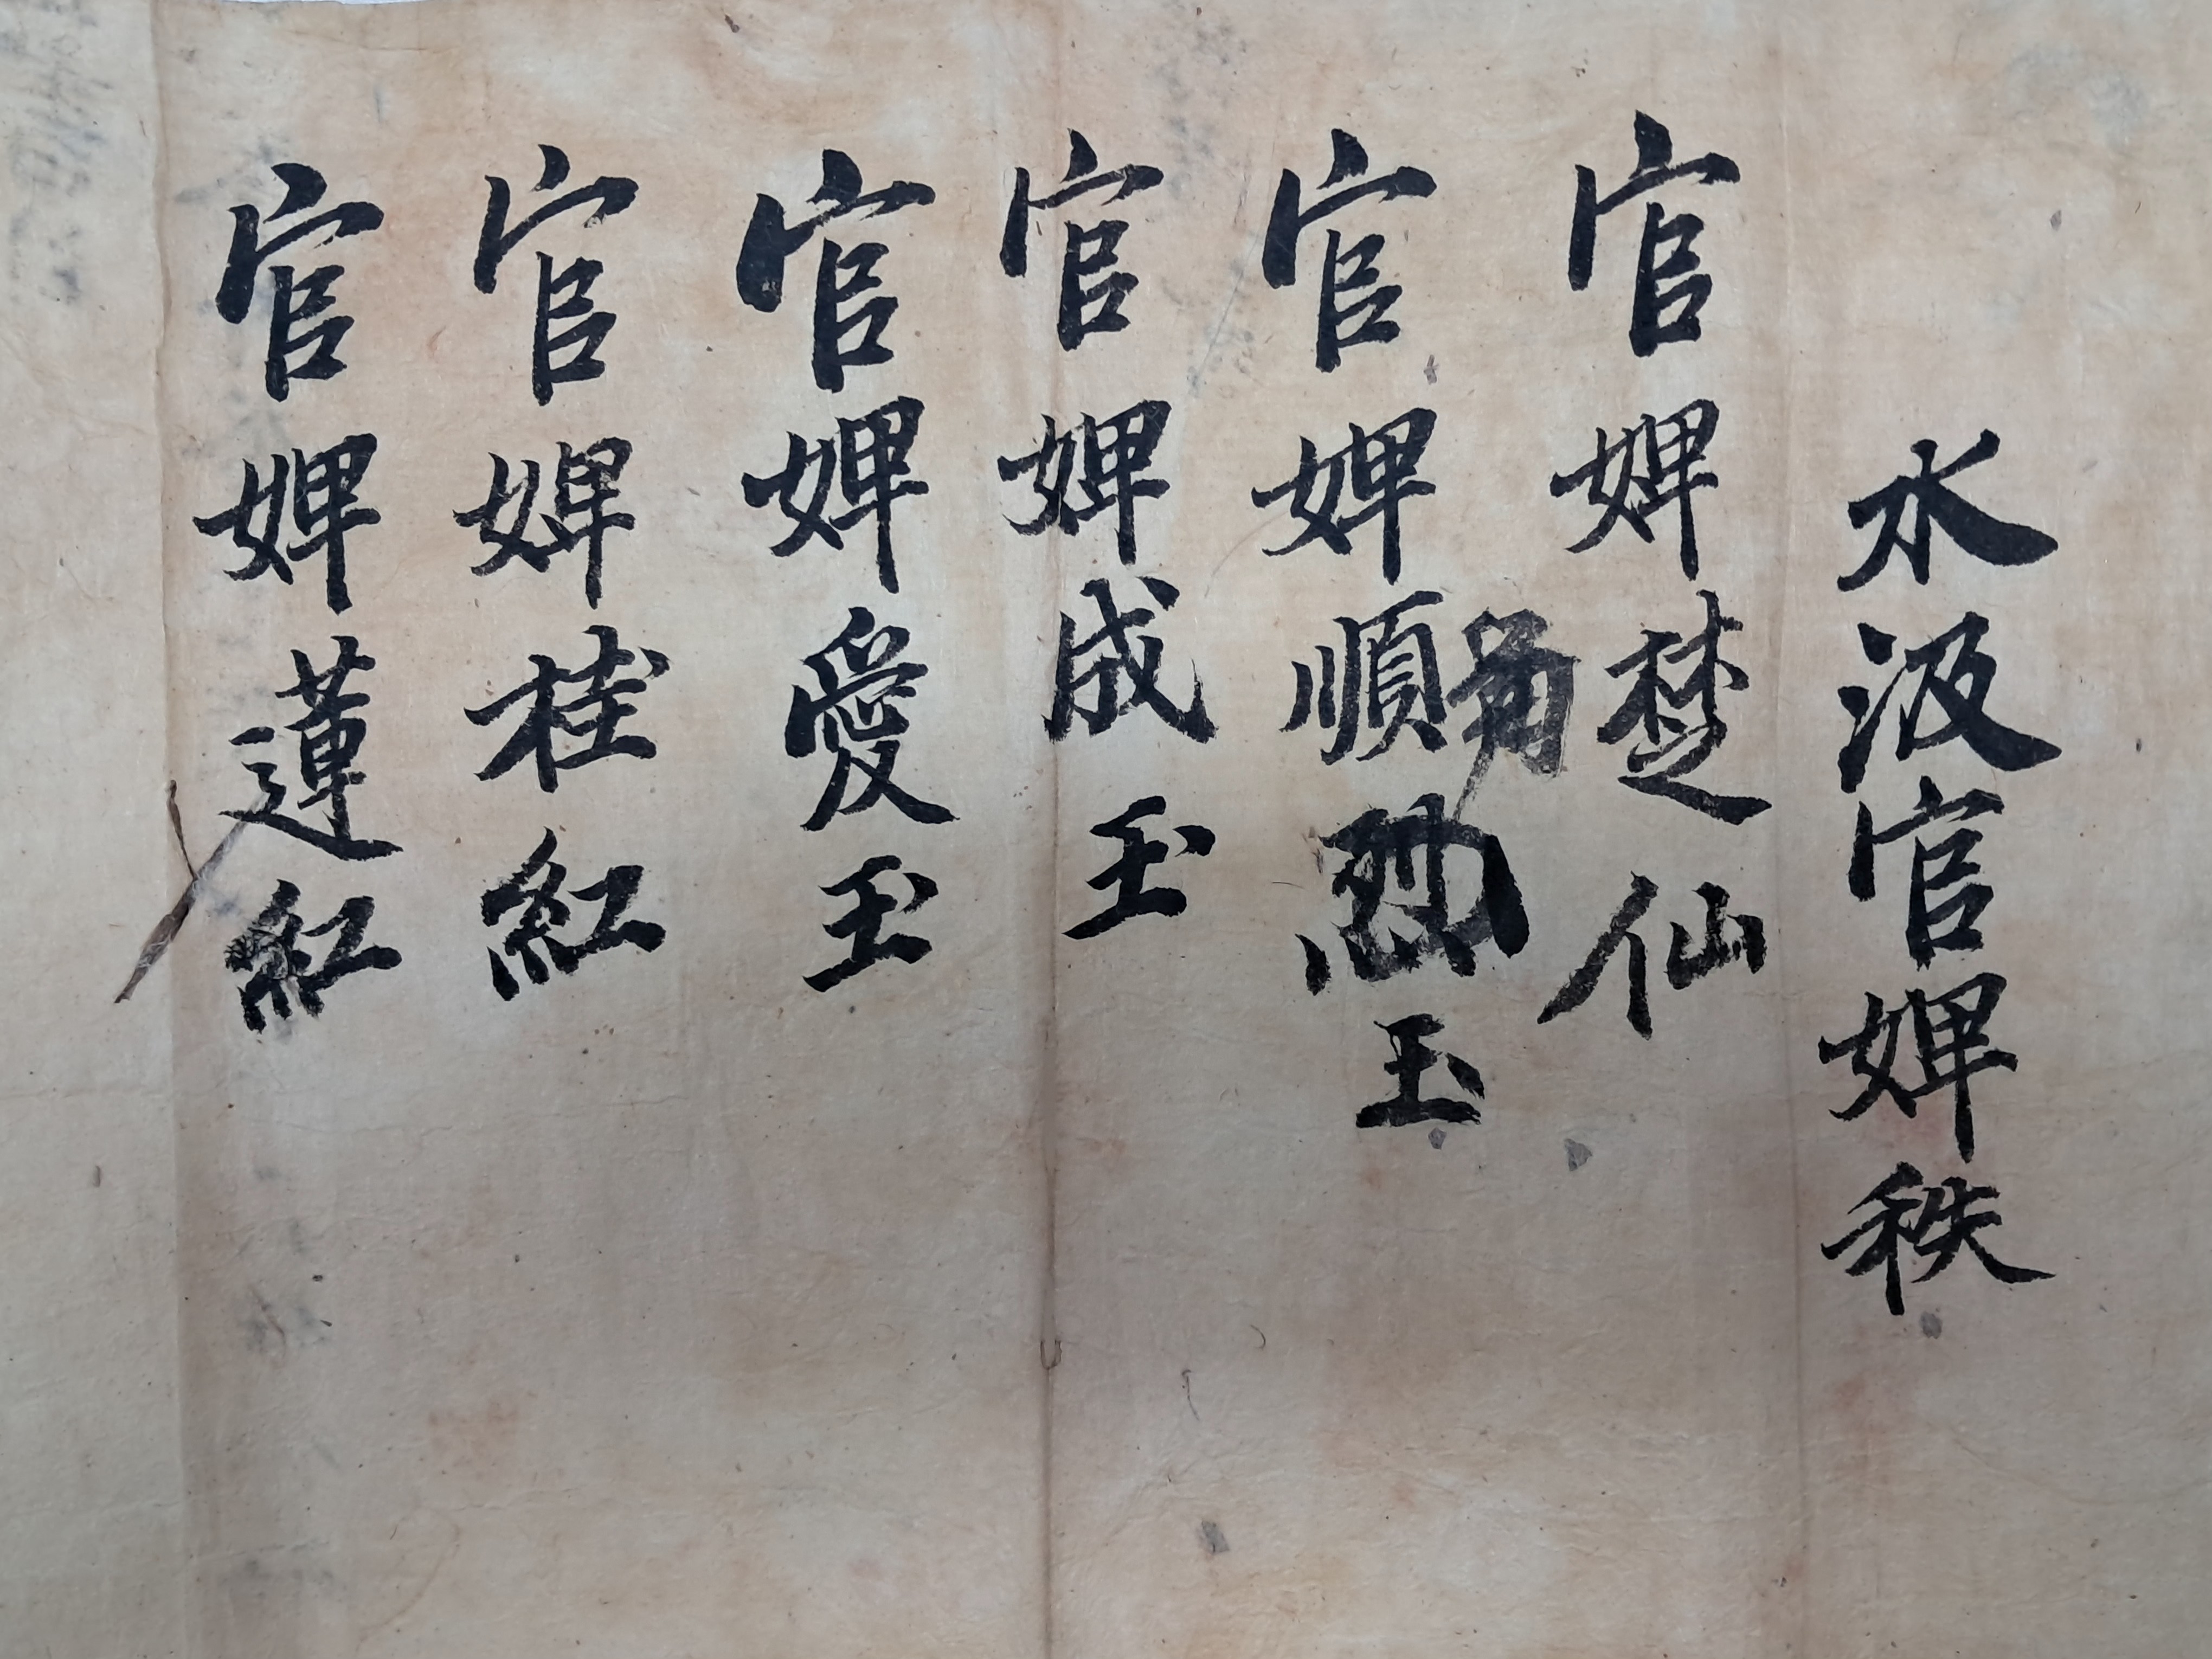 水汲官婢秩
官婢楚仙
官婢順玉
官婢成玉
官婢愛玉
官婢桂紅
官婢蓮紅